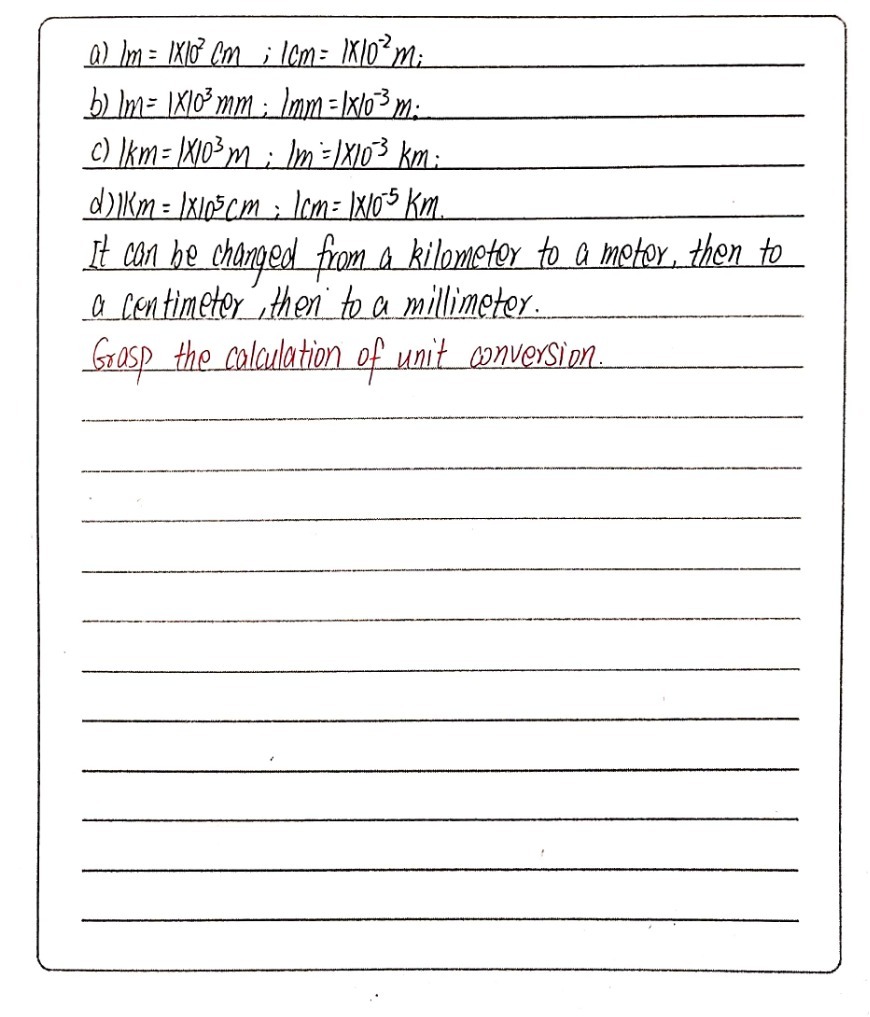 a) 1m = 1×10² cm ; 1cm = 1×10⁻² m;
b) 1m = 1×10³ mm ; 1mm = 1×10⁻³ m;
c) 1km = 1×10³ m ; 1m = 1×10⁻³ km;
d) 1Km = 1×10⁵ cm ; 1cm = 1×10⁻⁵ Km.
It can be changed from a kilometer to a meter, then to
a centimeter, then to a millimeter.
Grasp the calculation of unit conversion.